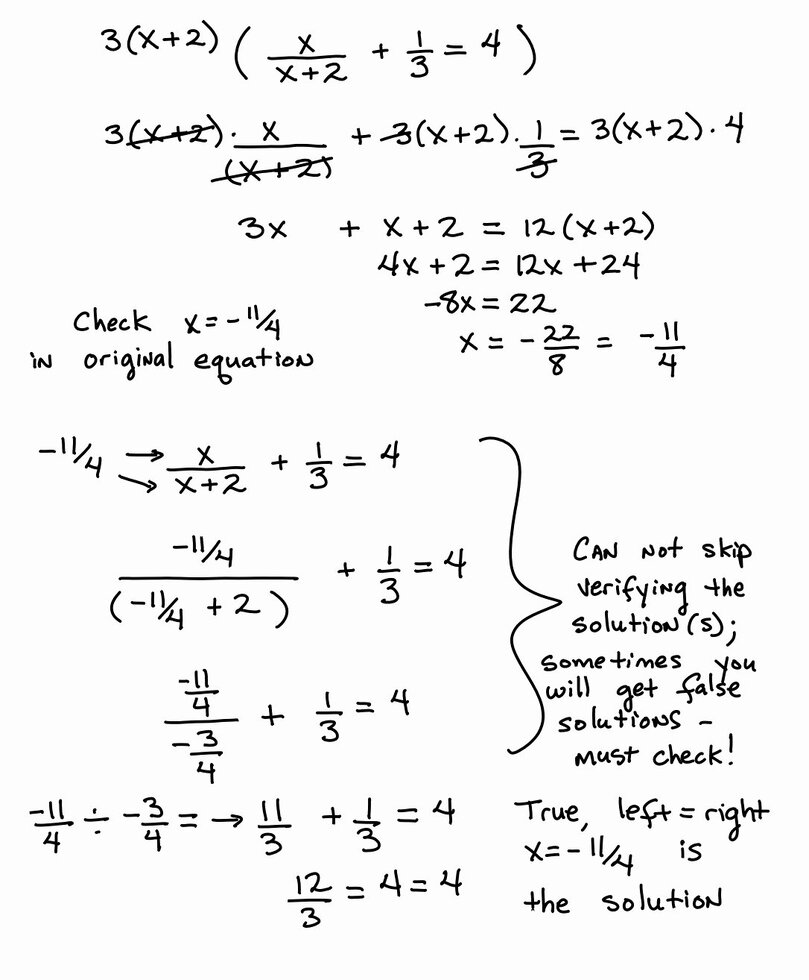 3(x+2) ( x/(x+2) + 1/3 = 4 )
3(x+2) · x/(x+2) + 3(x+2) · 1/3 = 3(x+2) · 4
3x + x + 2 = 12(x+2)
4x + 2 = 12x + 24
-8x = 22
x = - 22/8 = -11/4
Check x = -11/4
in original equation
-11/4 → → x/(x+2) + 1/3 = 4
-11/4 / (-11/4 + 2) + 1/3 = 4
(-11/4)/(-3/4) + 1/3 = 4
Can not skip
verifying the
solution(s);
sometimes you
will get false
solutions -
must check!
-11/4 ÷ -3/4 = → 11/3 + 1/3 = 4
12/3 = 4 = 4
True, left = right
x = -11/4 is
the solution